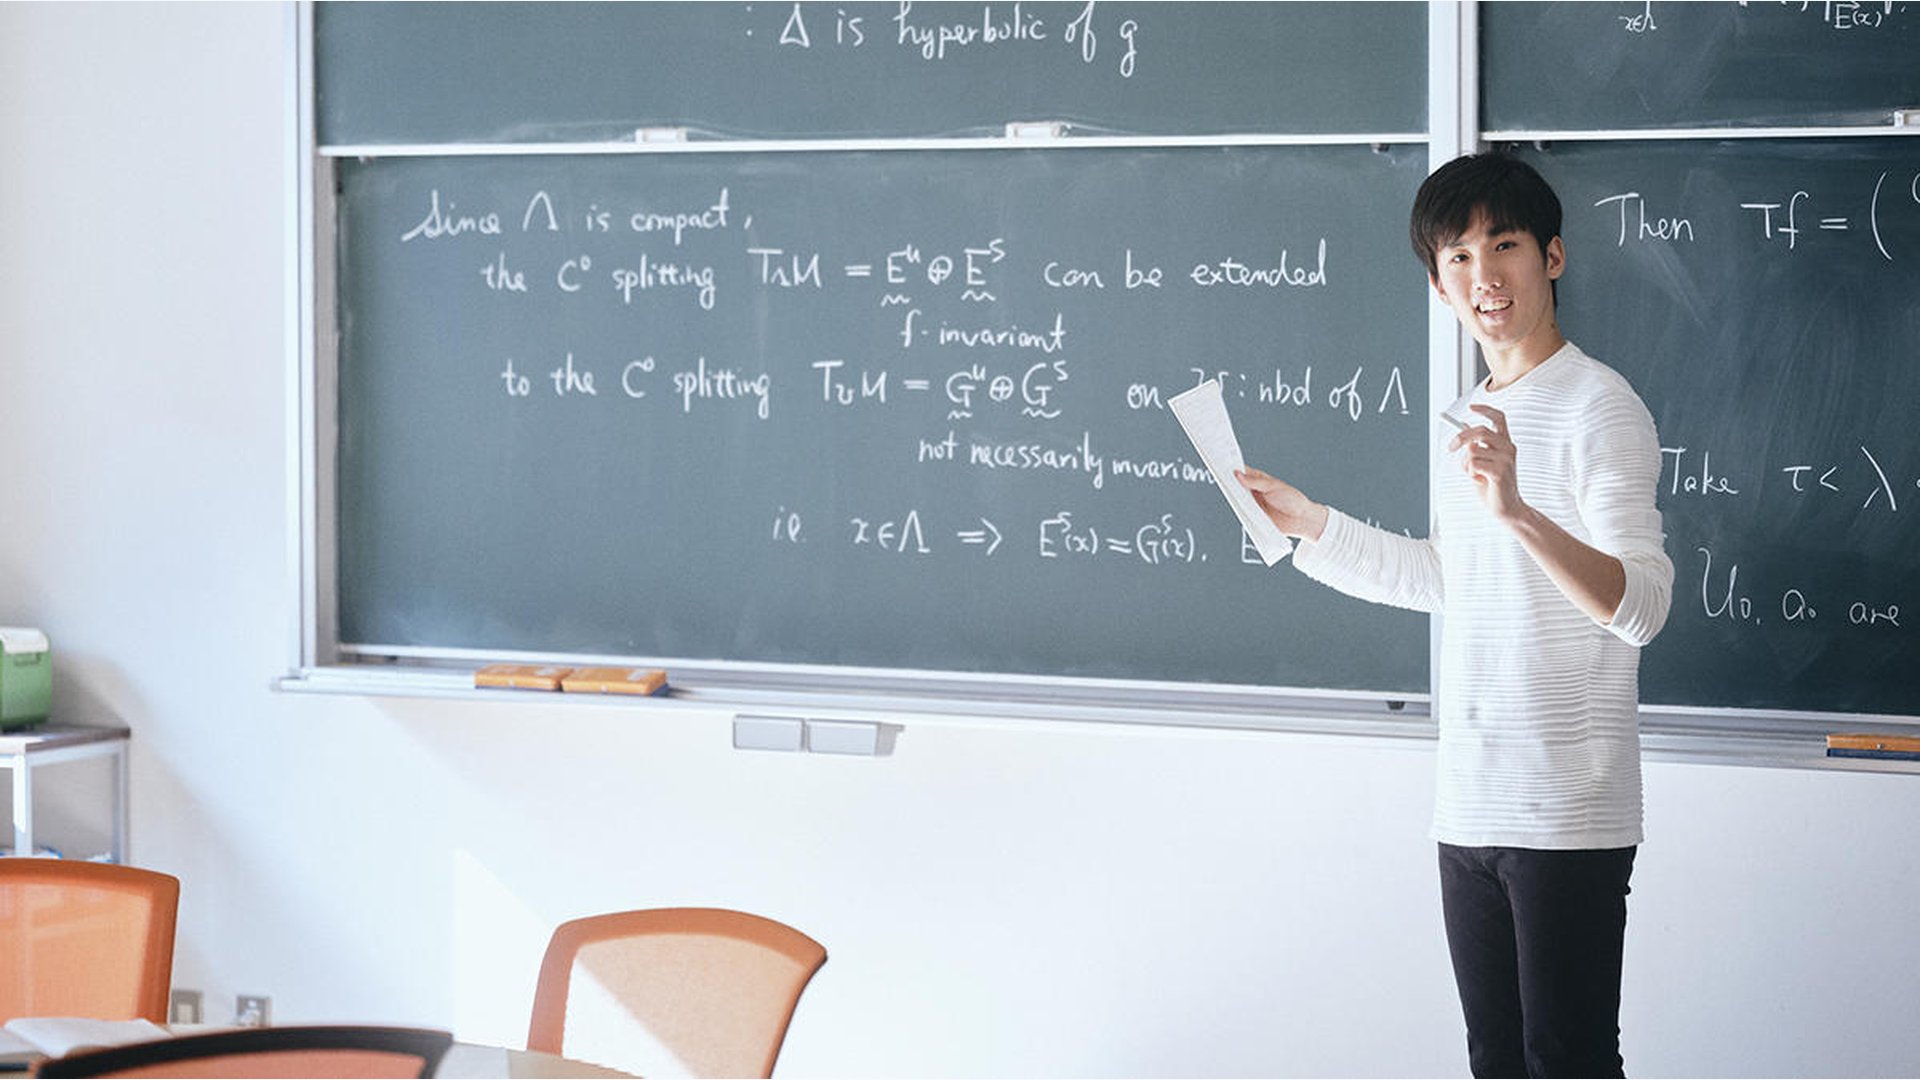 : Δ is hyperbolic of g
Since Λ is compact,
the C⁰ splitting T_ΛM = Eᵘ ⊕ Eˢ can be extended
f-invariant
to the C⁰ splitting T_UM = Gᵘ ⊕ Gˢ on U : nbd of Λ
not necessarily invarian
i.e. x ∈ Λ ⇒ Eˢ(x) = Gˢ(x). E
x∈Λ E(x)
Then Tf = (
Take τ < λ
U₀, a₀ are